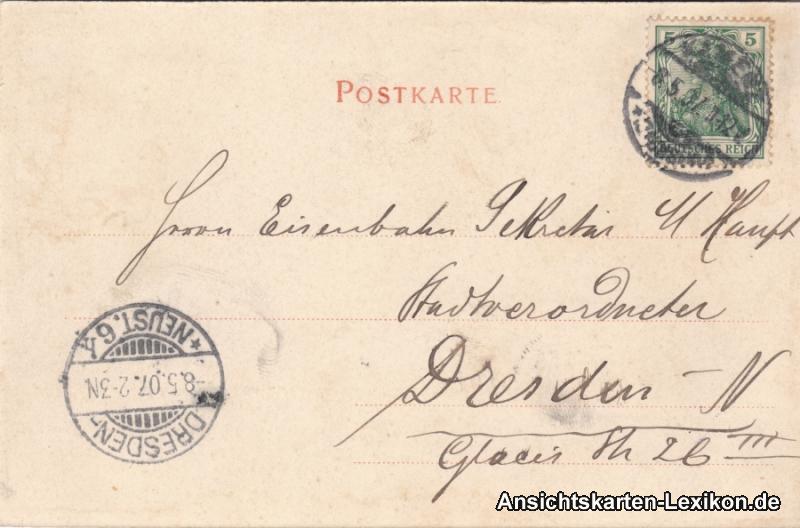 5 5
DEUTSCHES REICH
POSTKARTE
Herrn Eisenbahn Sekretär Haupt
Stadtverordneter
Dresden - N
Glacis Str 26 III
DRESDEN-
-8.5.07.2-3N
* NEUST. 6 *
Ansichtskarten-Lexikon.de